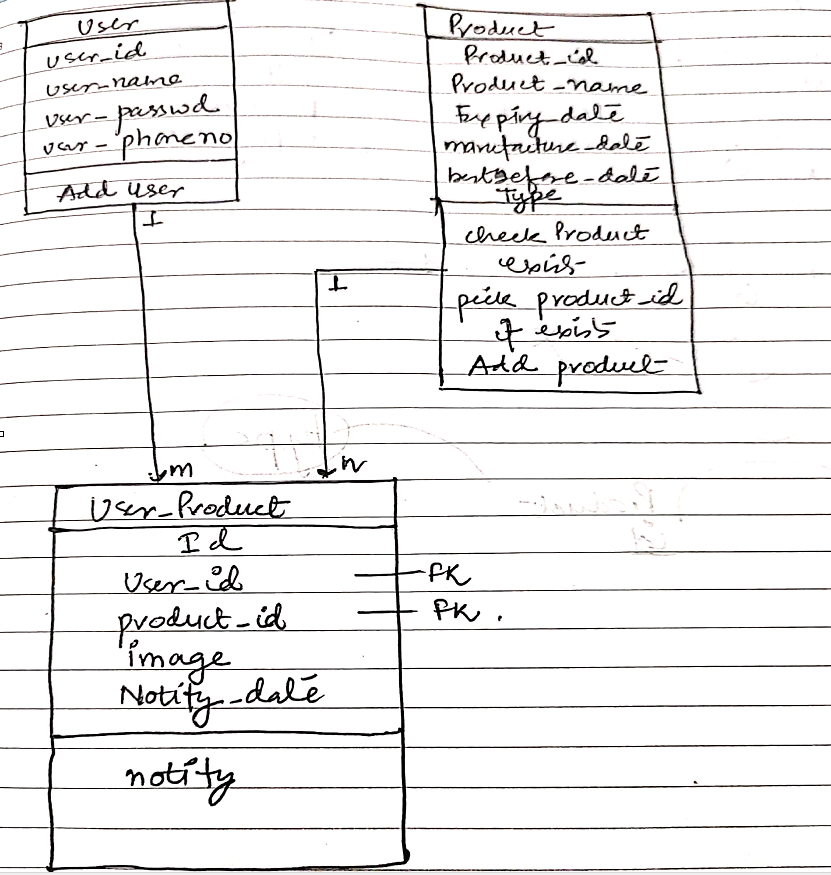 User
user_id
user-name
user-passwd
user-phoneno
Add user
1
m
Product
Product_id
Product-name
Expiry_date
manufacture-date
bestbefore-date
Type
check Product
exists
pick product_id
if exists
Add product
1
n
User_Product
Id
User_id
FK
product_id
FK.
image
Notify_date
notify